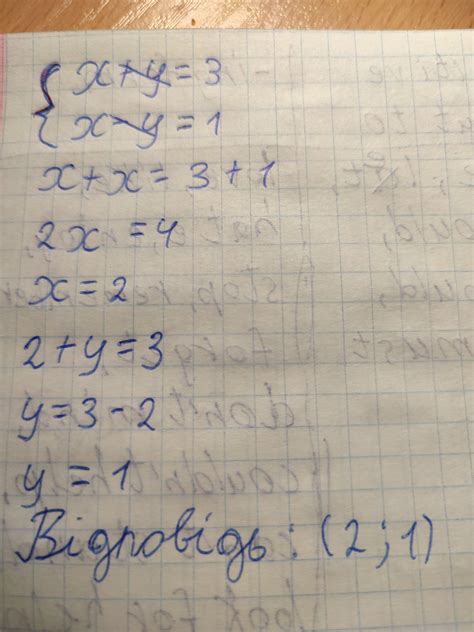 x+y=3
x-y=1
x+x=3+1
2x=4
x=2
2+y=3
y=3-2
y=1
Відповідь: (2;1)